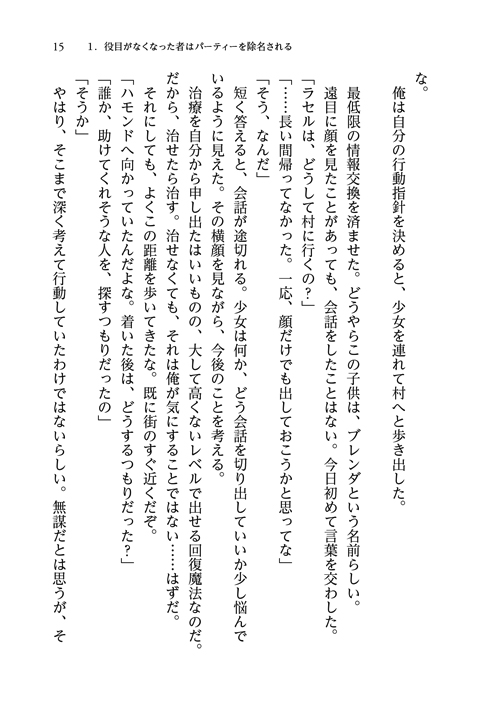 15　1．役目がなくなった者はパーティーを除名される
な。
　俺は自分の行動指針を決めると、少女を連れて村へと歩き出した。
　最低限の情報交換を済ませた。どうやらこの子供は、ブレンダという名前らしい。
　遠目に顔を見たことがあっても、会話をしたことはない。今日初めて言葉を交わした。
「ラセルは、どうして村に行くの？」
「……長い間帰ってなかった。一応、顔だけでも出しておこうかと思ってな」
「そう、なんだ」
　短く答えると、会話が途切れる。少女は何か、どう会話を切り出していいか少し悩んで
いるように見えた。その横顔を見ながら、今後のことを考える。
　治療を自分から申し出たはいいものの、大して高くないレベルで出せる回復魔法なのだ。
だから、治せたら治す。治せなくても、それは俺が気にすることではない……はずだ。
　それにしても、よくこの距離を歩いてきたな。既に街のすぐ近くだぞ。
「ハモンドへ向かっていたんだよな。着いた後は、どうするつもりだった？」
「誰か、助けてくれそうな人を、探すつもりだったの」
「そうか」
　やはり、そこまで深く考えて行動していたわけではないらしい。無謀だとは思うが、そ